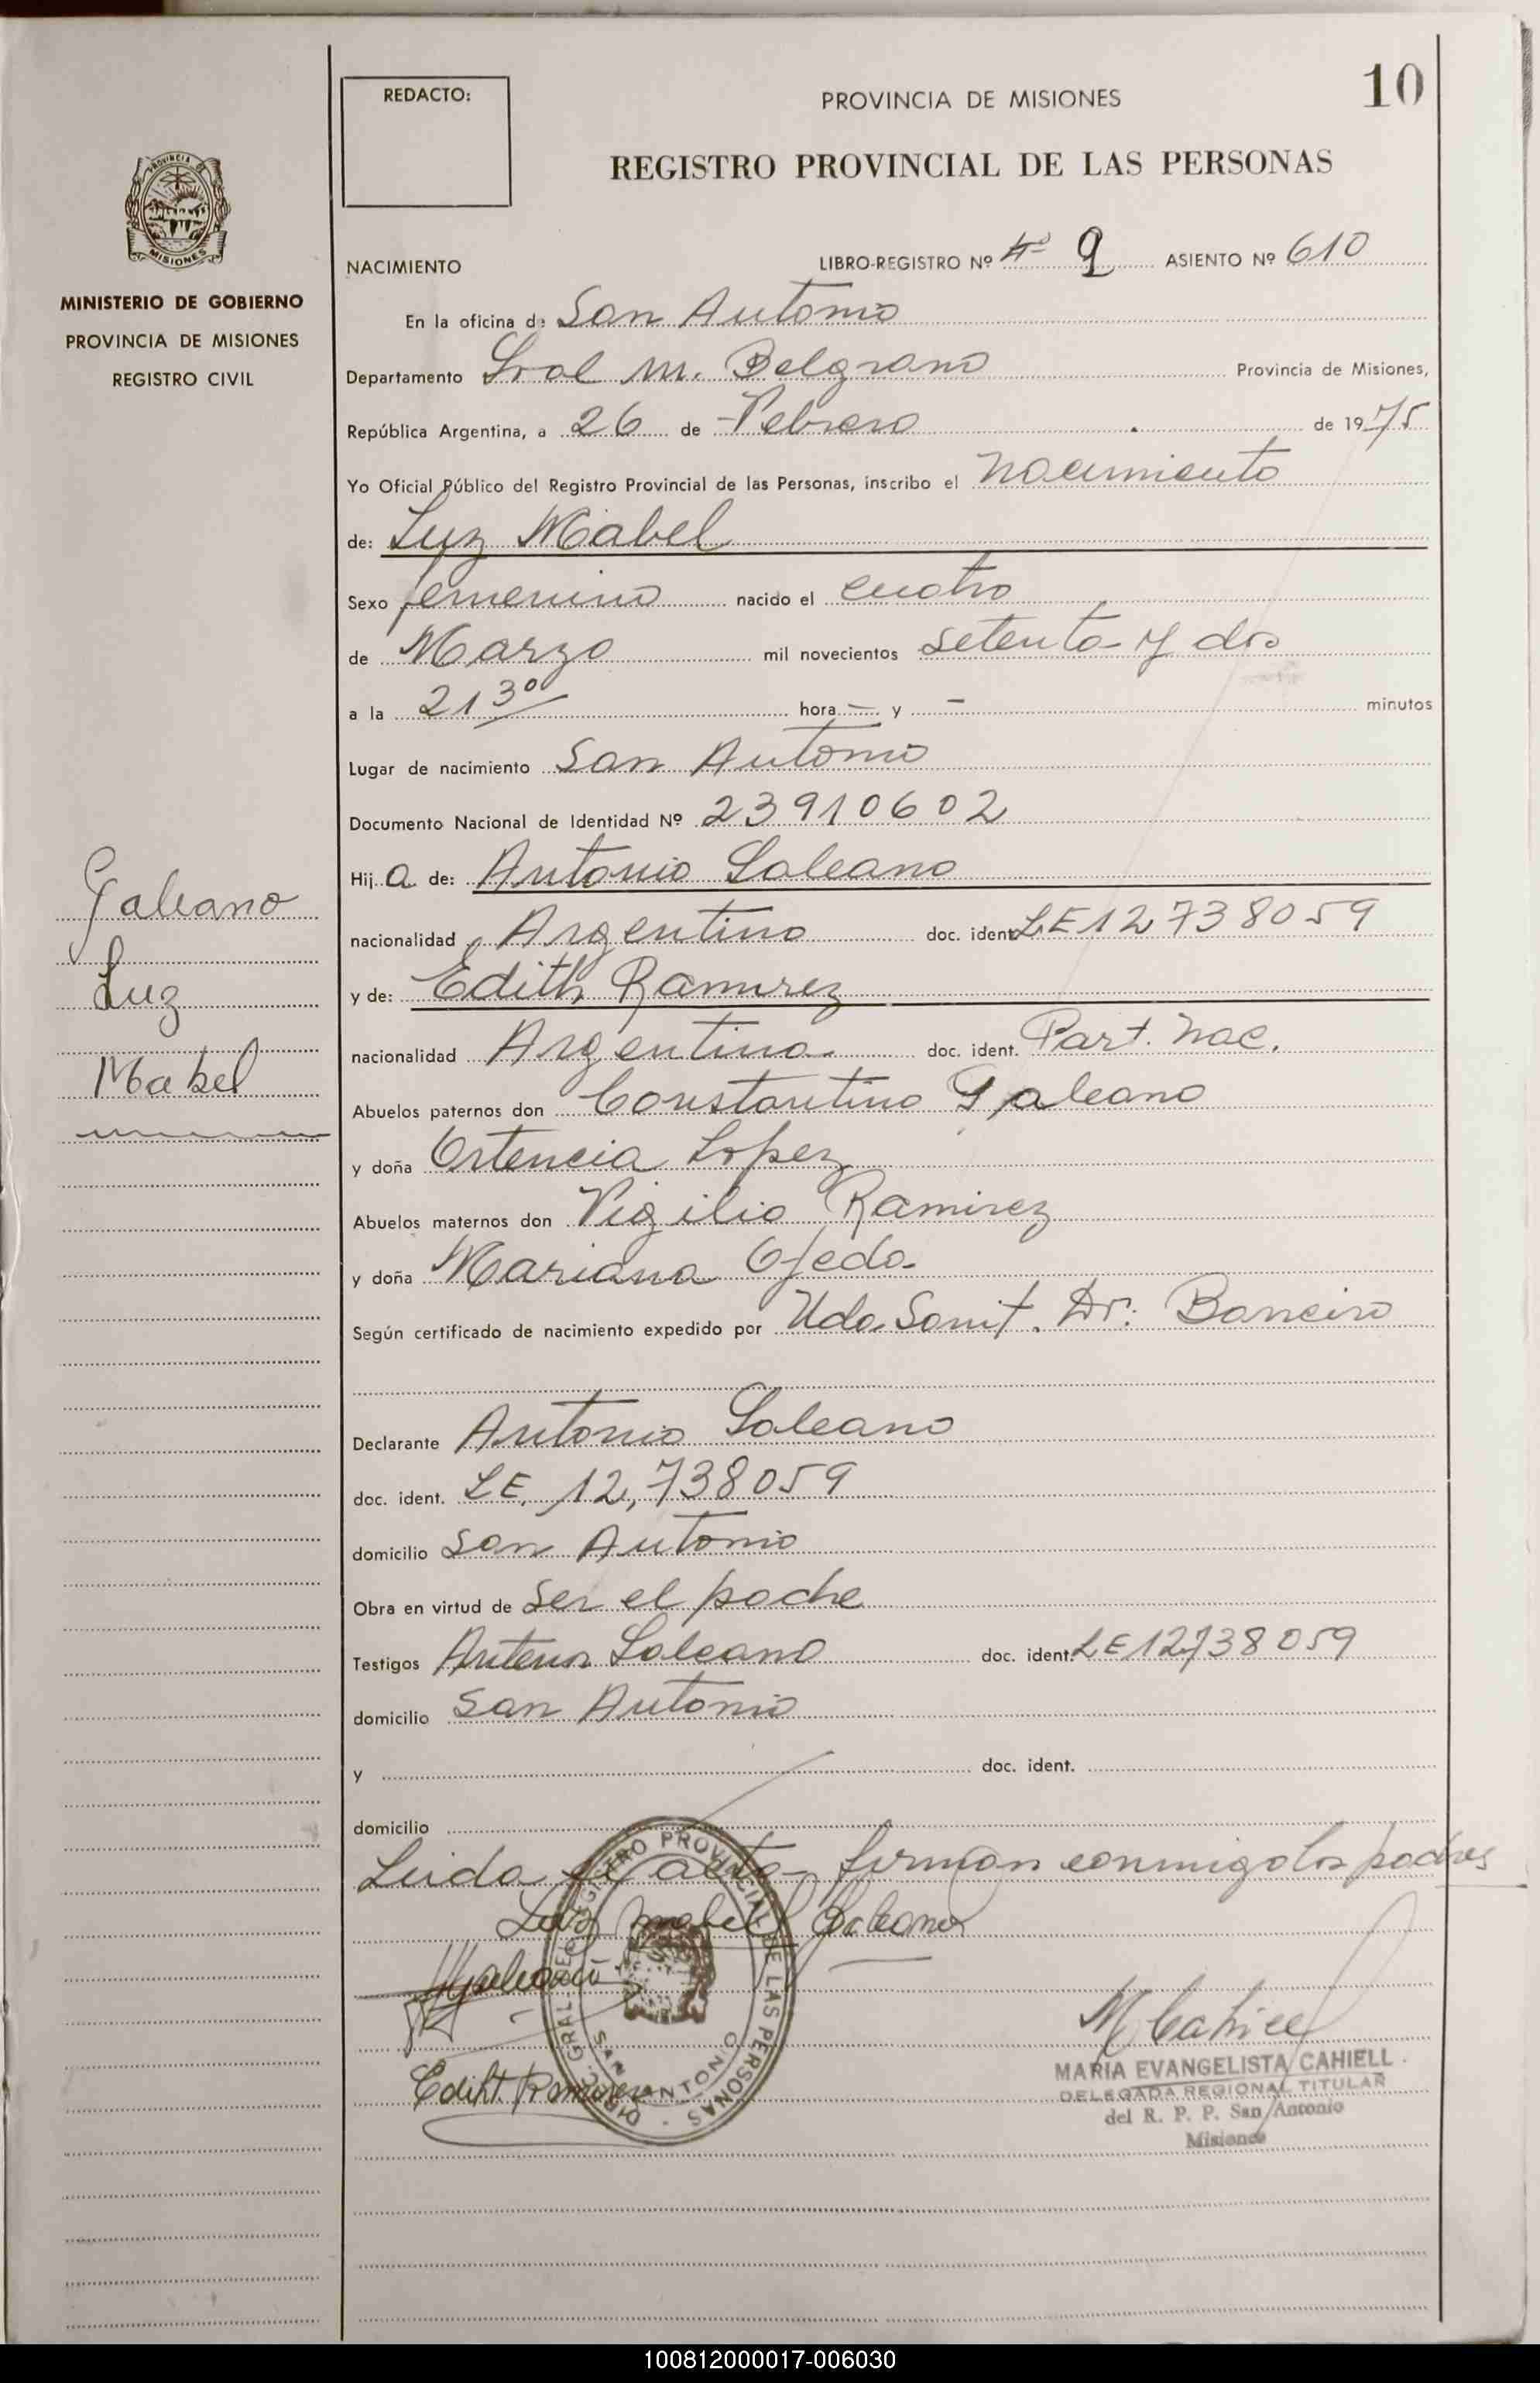 10
REDACTO:
PROVINCIA DE MISIONES
REGISTRO PROVINCIAL DE LAS PERSONAS
PROVINCIA DE
MISIONES
MINISTERIO DE GOBIERNO
PROVINCIA DE MISIONES
REGISTRO CIVIL
NACIMIENTO LIBRO-REGISTRO Nº 4º 9 ASIENTO Nº 610
En la oficina de San Antonio
Departamento Gral M. Belgrano Provincia de Misiones,
República Argentina, a 26 de Febrero de 1975
Yo Oficial Público del Registro Provincial de las Personas, inscribo el nacimiento
de: Luz Mabel
Sexo femenino nacido el cuatro
de Marzo mil novecientos setenta y dos
a la 21 30 hora — y — minutos
Lugar de nacimiento San Antonio
Documento Nacional de Identidad Nº 23910602
Hij a de: Antonio Galeano
nacionalidad Argentino doc. ident LE 12738059
y de: Edith Ramirez
nacionalidad Argentina doc. ident. Part. Nac.
Abuelos paternos don Constantino Galeano
y doña Ortencia Lopez
Abuelos maternos don Vigilio Ramirez
y doña Mariana Ojeda
Según certificado de nacimiento expedido por Uda. Sanit. Dr. Barreiro
Galeano
Luz
Mabel
Declarante Antonio Galeano
doc. ident. LE. 12,738059
domicilio San Antonio
Obra en virtud de ser el padre
Testigos Antonio Galeano doc. ident. LE 12738059
domicilio San Antonio
y doc. ident.
domicilio
Leida el acta firman conmigo los padres
Luz Mabel Galeano
Galeano
Ediht. Ramirez
DIREC. GRAL. DEL REGISTRO PROVINCIAL DE LAS PERSONAS
SAN ANTONIO
M Cahiell
MARIA EVANGELISTA CAHIELL
DELEGADA REGIONAL TITULAR
del R. P. P. San Antonio
Misiones
100812000017-006030